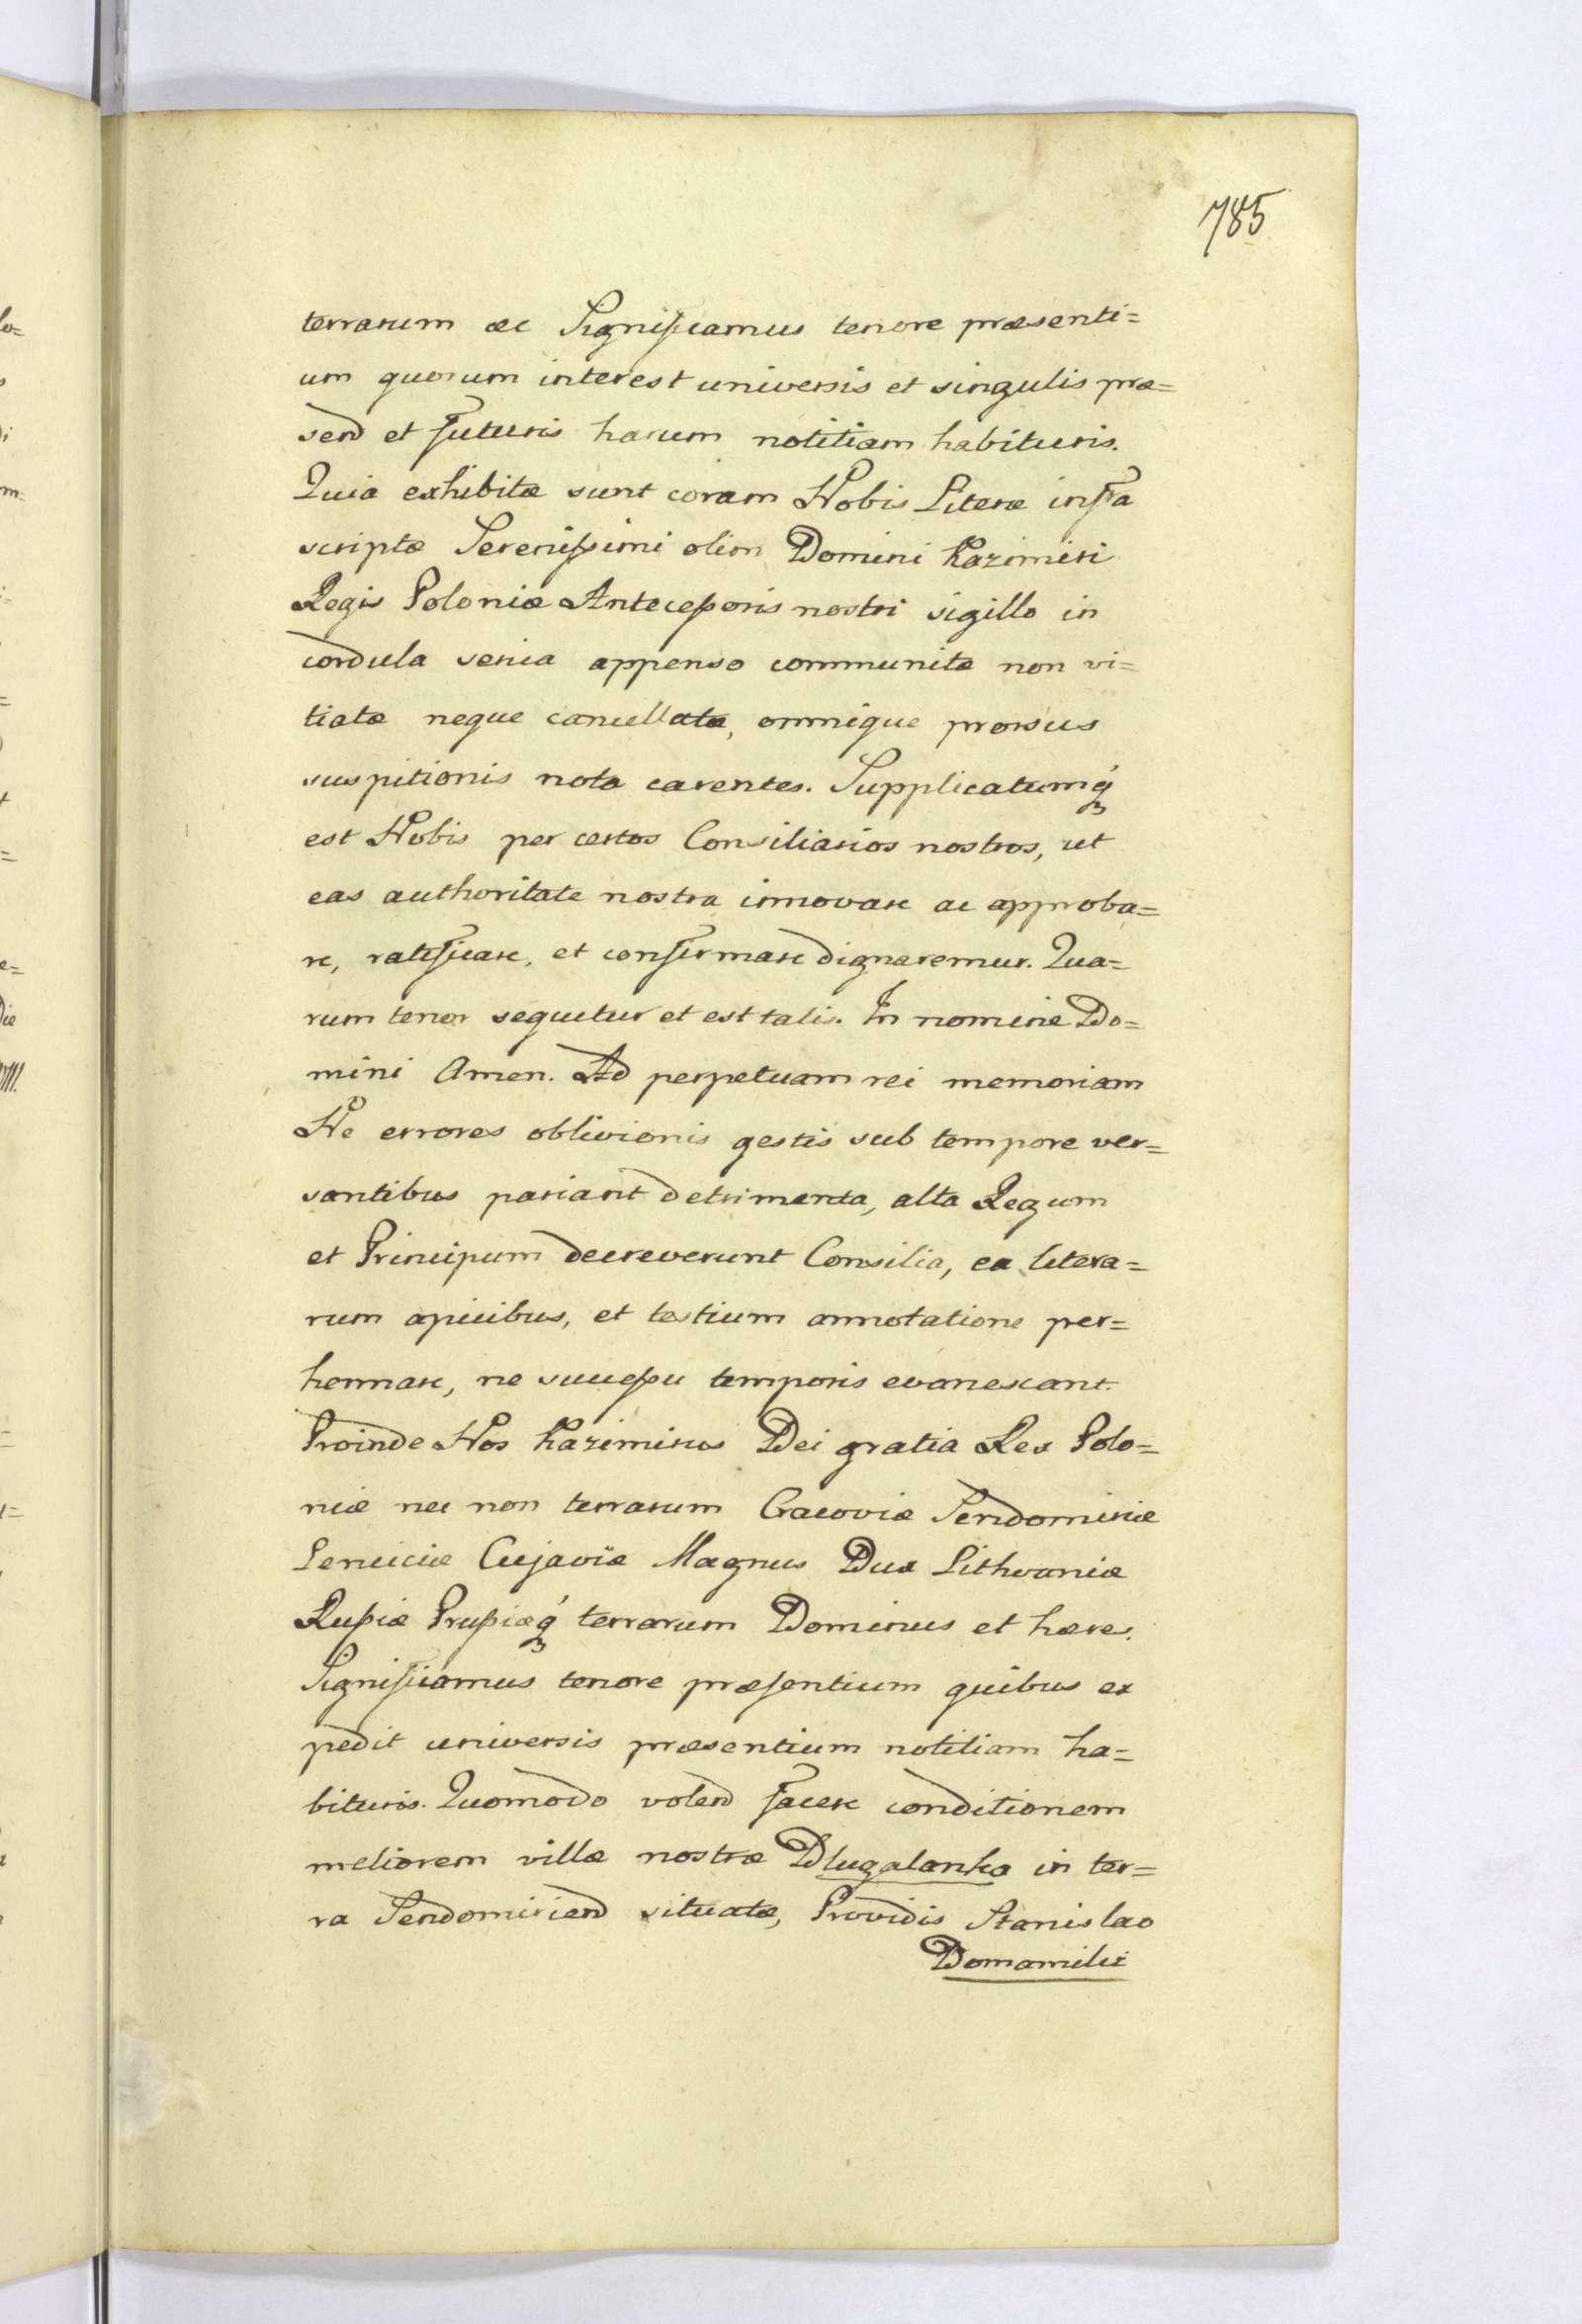 785
terrarum ac Significamus tenore præsenti=
um quorum interest universis et singulis præ=
send et futuris harum notitiam habituris.
Quia exhibitæ sunt coram Nobis Literæ infra
scriptæ Serenißimi olim Domini Kazimiri
Regis Poloniæ Anteceßoris nostri sigillo in
cordula serica appenso communitæ non vi=
tiatæ neque cancellatæ, omnique prorsus
suspitionis nota carentes. Supplicatumq́
est Nobis per certos Consiliarios nostros, ut
eas authoritate nostra innovare ac approba=
re, ratificare, et confirmare dignaremur. Qua=
rum tenor sequitur et est talis. In nomine Do=
mini Amen. Ad perpetuam rei memoriam
Ne errores oblivionis gestis sub tempore ver=
santibus pariant detrimenta, alta Regum
et Principum decreverunt Consilia, ea litera=
rum apicibus, et testium annotatione per=
hennare, ne succeßu temporis evanescant.
Proinde Nos Kazimirus Dei gratia Rex Polo=
niæ nec non terrarum Cracoviæ Sendomiriæ
Lenciciæ Cujaviæ Magnus Dux Lithvaniæ
Rußiæ Prußiæq́ terrarum Dominus et hæres.
Significamus tenore præsentium quibus ex
pedit universis præsentium notitiam ha=
bituris. Quomodo volend facere conditionem
meliorem villæ nostræ Dlugalanka in ter=
ra Sendomiriend situatæ, Providis Stanislao